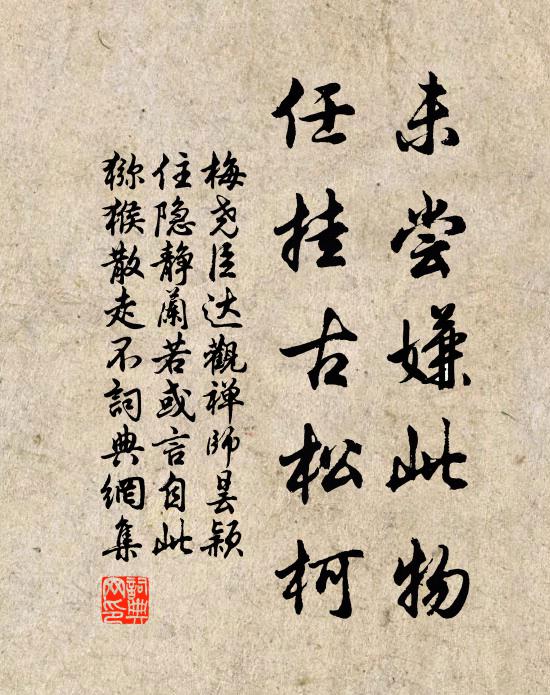 未尝嫌此物
任挂古松柯
梅尧臣达觀禅师昙颖
住隐静蘭若或言自此
猕猴散走不詞典網集
詞典網印